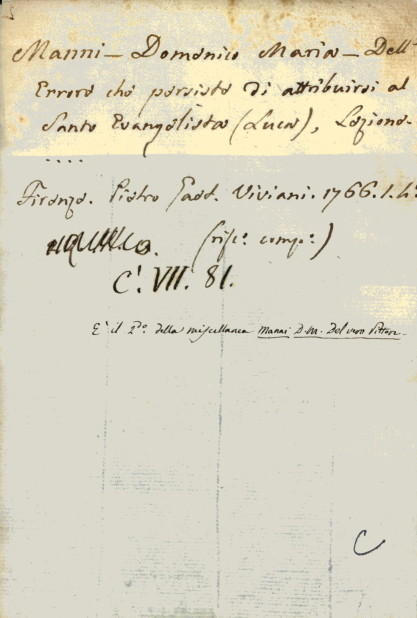 Manni – Domenico Maria – Dell'
Errore che persiste di attribuirsi al
Santo Evangelista (Luca), Lezione.
....
Firenze. Pietro Gaet. Viviani. 1766. 1. 4º
(misc. comp.)
C'. VII. 81.
E' il 2º. della miscellanea Manni D. M. Del vero Pittore
C